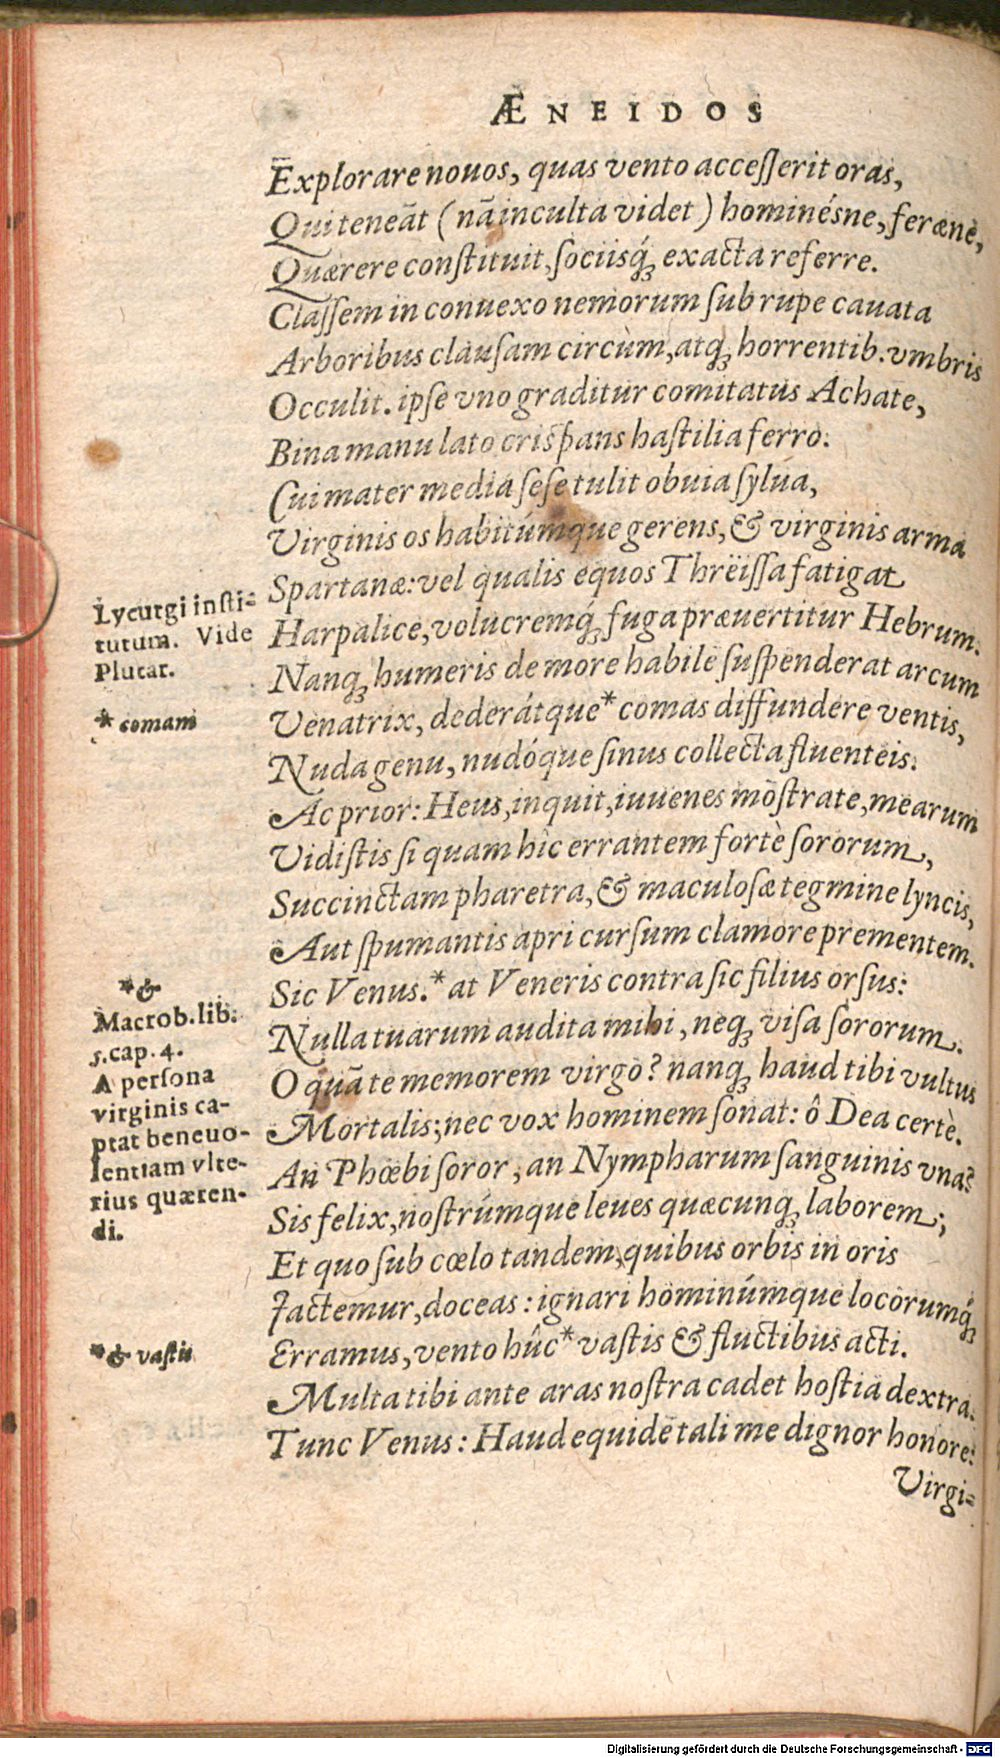 ÆNEIDOS
Explorare nouos, quas vento accesserit oras,
Qui teneāt (nā inculta videt) hominésne, feræne,
Quærere constituit, sociisq́; exacta referre.
Classem in conuexo nemorum sub rupe cauata
Arboribus clausam circùm, atq; horrentib. vmbris
Occulit. ipse vno graditur comitatus Achate,
Bina manu lato crispans hastilia ferro.
Cui mater media sese tulit obuia sylua,
Virginis os habitúmque gerens, & virginis arma
Spartanæ: vel qualis equos Threïssa fatigat
Lycurgi insti-
tutum. Vide
Plutar.
Harpalice, volucremq́; fuga præuertitur Hebrum.
Nanq; humeris de more habile suspenderat arcum
* comam
Venatrix, dederátque * comas diffundere ventis,
Nuda genu, nudóque sinus collecta fluenteis.
Ac prior: Heus, inquit, iuuenes mōstrate, mearum
Vidistis si quam hîc errantem fortè sororum,
Succinctam pharetra, & maculosæ tegmine lyncis,
Aut spumantis apri cursum clamore prementem.
* &
Sic Venus. * at Veneris contra sic filius orsus:
Macrob. lib.
5. cap. 4.
A persona
virginis ca-
ptat beneuo-
lentiam vlte-
rius quæren-
di.
Nulla tuarum audita mihi, neq; visa sororum.
O quā te memorem virgo? nanq; haud tibi vultus
Mortalis; nec vox hominem sonat: ô Dea certè.
An Phœbi soror, an Nympharum sanguinis vna?
Sis felix, nostrúmque leues quæcunq; laborem;
Et quo sub cœlo tandem, quibus orbis in oris
Jactemur, doceas: ignari hominúmque locorumq́;
* & vastis
Erramus, vento hûc * vastis & fluctibus acti.
Multa tibi ante aras nostra cadet hostia dextra.
Tunc Venus: Haud equidē tali me dignor honore:
Virgi-
Digitalisierung gefördert durch die Deutsche Forschungsgemeinschaft - DFG